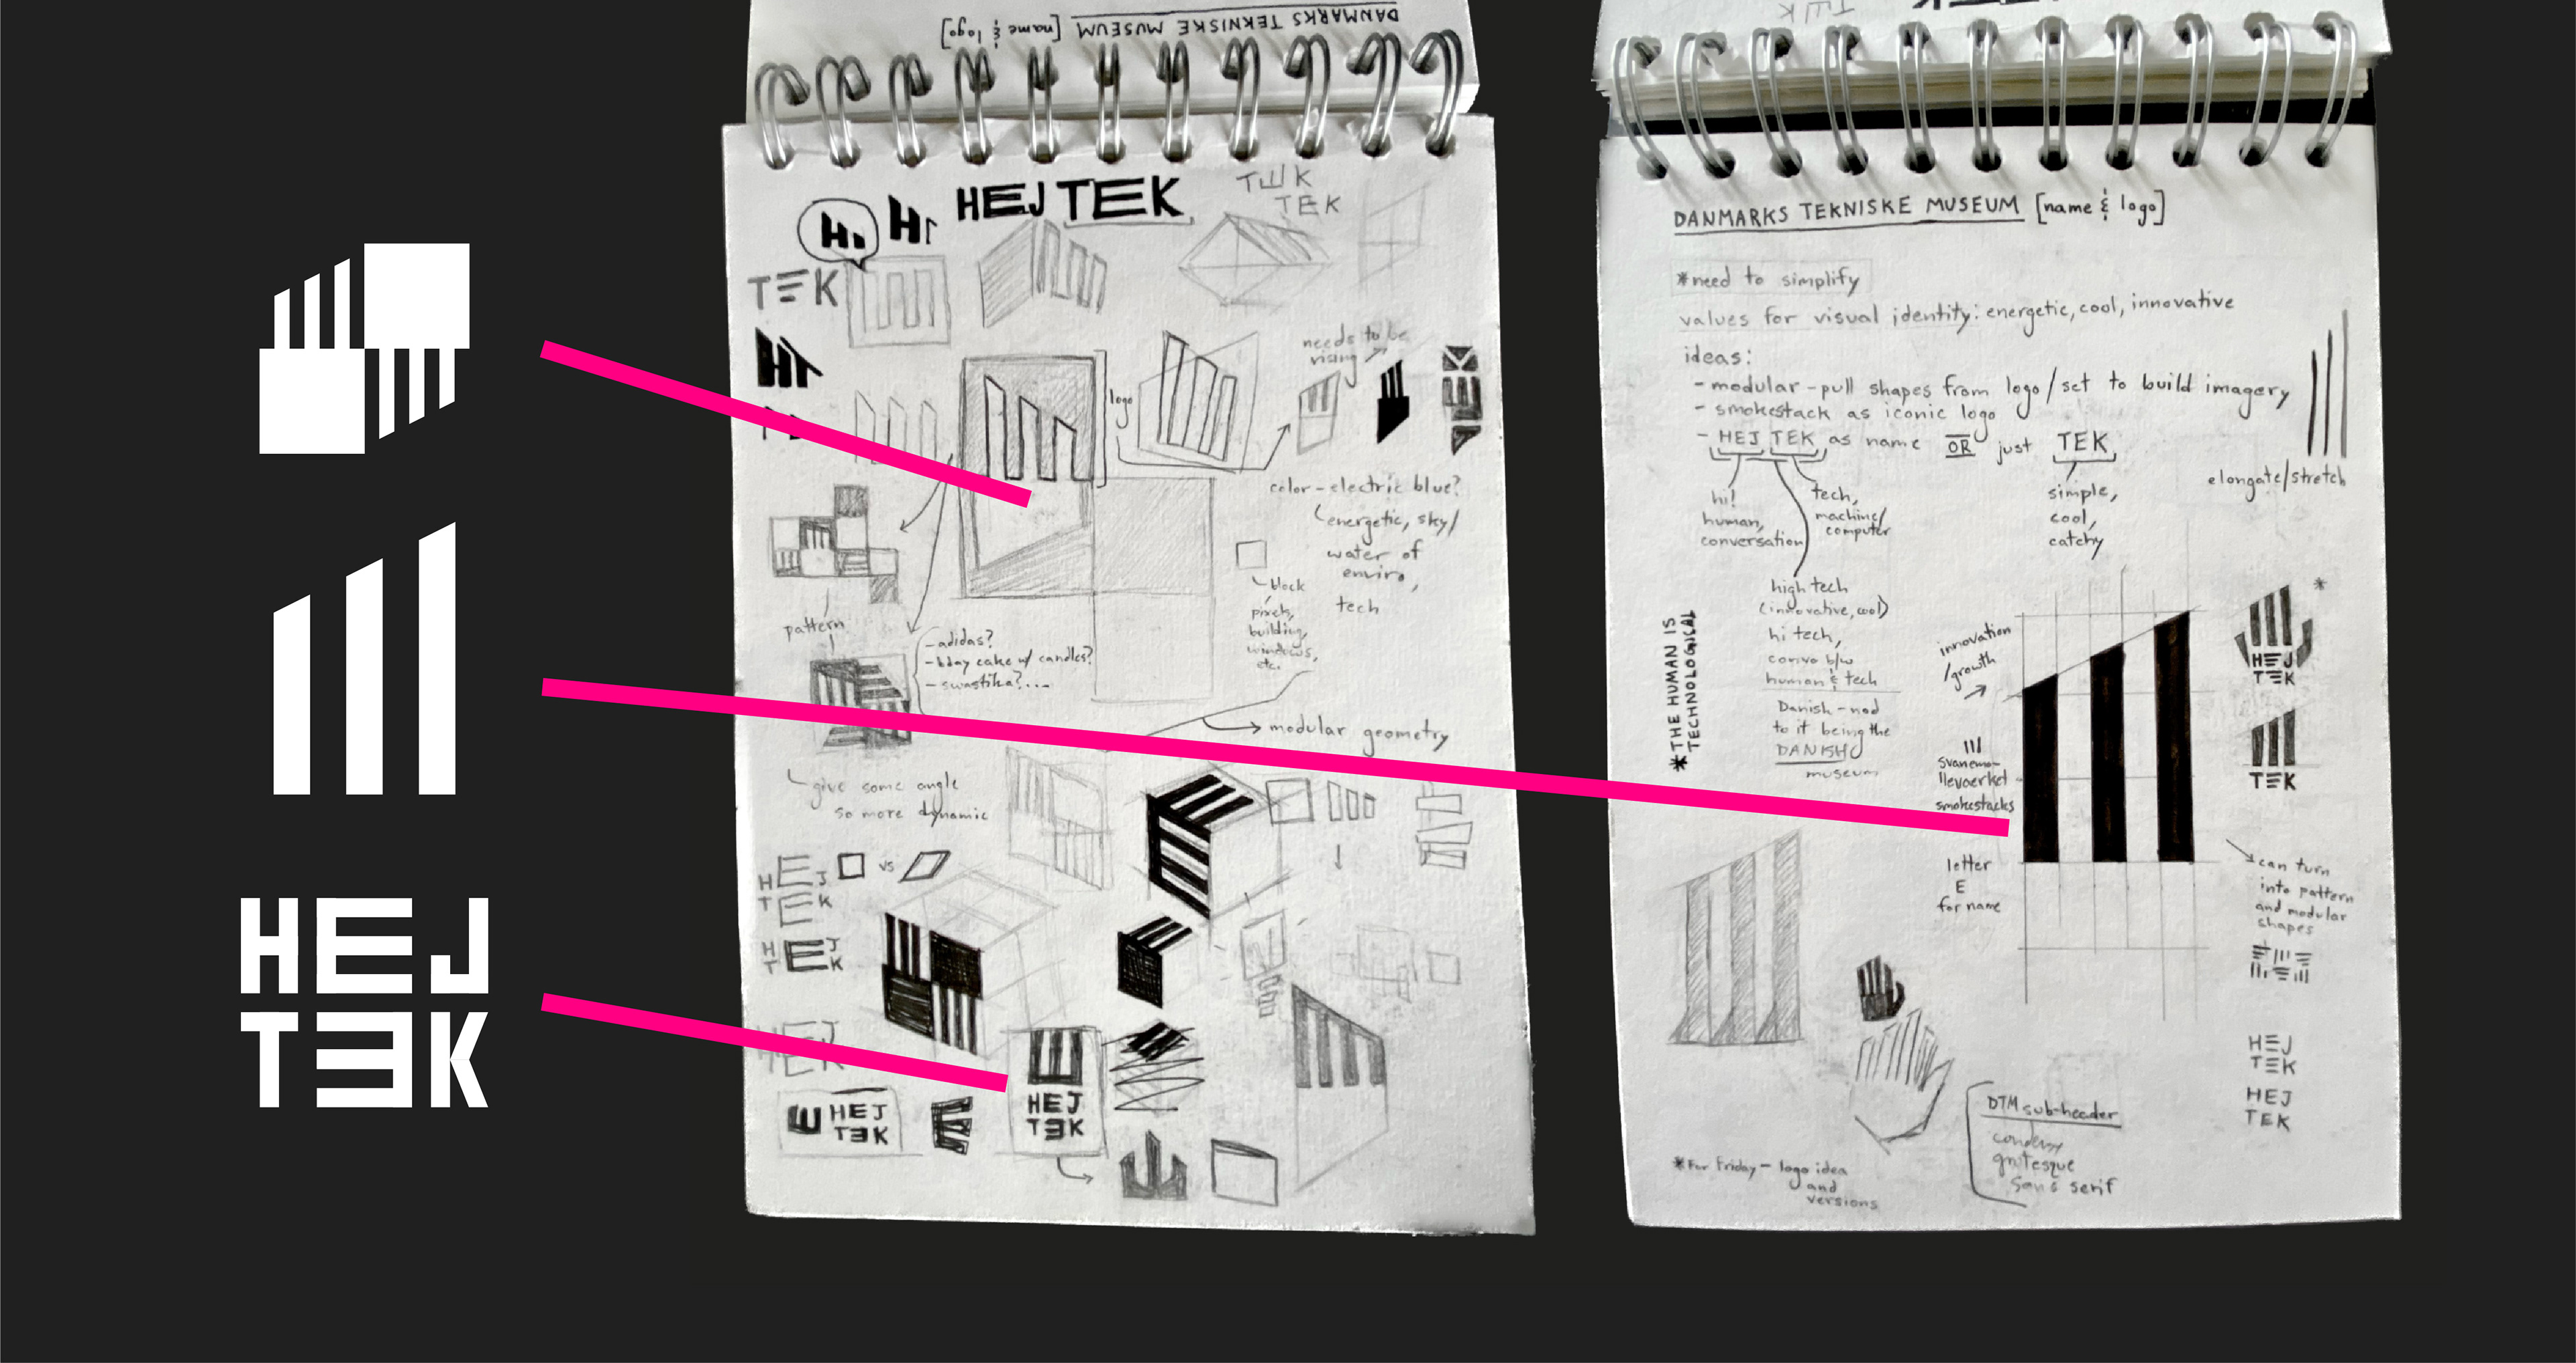 HEJ
TEK
DANMARKS TEKNISKE MUSEUM [name & logo]
Hi
Hi
HEJ TEK
TWK
TEK
TEK
Hi
needs to be
rising
TEK
logo
color - electric blue?
energetic, sky/
water of
enviro,
tech
block
pixels,
building,
windows,
etc.
pattern
- adidas?
- bday cake w/ candles?
- swastika?...
modular geometry
give some angle
so more dynamic
HEJ
TEK
vs
H E J
T K
HEJ
TEK
E HEJ
TEK
E
HEJ
TEK
DANMARKS TEKNISKE MUSEUM [name & logo]
*need to simplify
values for visual identity: energetic, cool, innovative
ideas:
- modular - pull shapes from logo/set to build imagery
- smokestack as iconic logo
- HEJ TEK as name OR just TEK
elongate/stretch
hi!
human,
conversation
tech,
machine/
computer
simple,
cool,
catchy
high tech
(innovative, cool)
hi tech,
convo b/w
human & tech
Danish - nod
to it being the
DANISH
museum
*THE HUMAN IS
TECHNOLOGICAL
innovation
/growth
svanemo-
llevaerket
smokestacks
letter
E
for name
*
HEJ
TEK
TEK
can turn
into pattern
and modular
shapes
HEJ
TEK
HEJ
TEK
DTM sub-header
grotesque
sans serif
*For Friday - logo idea
and
versions